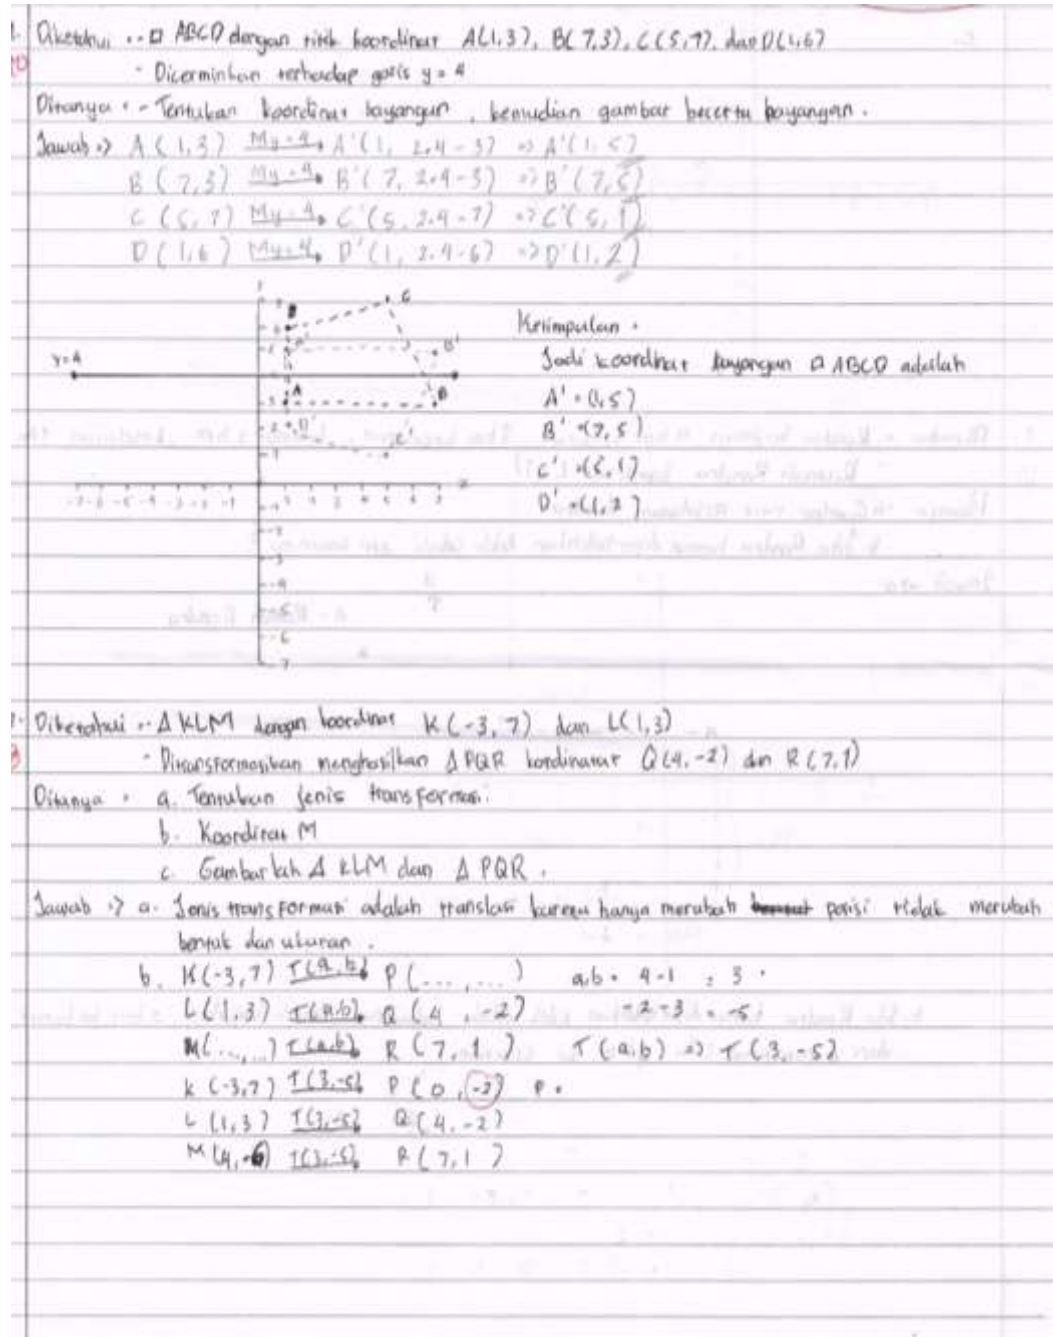 Diketahui :- □ ABCD dengan titik koordinat A(1,3), B(7,3), C(5,7), dan D(1,6)
- Dicerminkan terhadap garis y = 4
Ditanya : - Tentukan koordinat bayangan, kemudian gambar beserta bayangan.
Jawab => A(1,3) My=4 A'(1, 2.4-3) => A'(1,5)
B(7,3) My=4 B'(7, 2.4-3) => B'(7,5)
C(5,7) My=4 C'(5, 2.4-7) => C'(5,1)
D(1,6) My=4 D'(1, 2.4-6) => D'(1,2)
C
B'
y=4
A
B
D'
C'
-7 -6 -5 -4 -3 -2 -1
-4
-5
-6
-7
Kesimpulan :
Jadi koordinat bayangan □ ABCD adalah
A' = (1,5)
B' = (7,5)
C' = (5,1)
D' = (1,2)
Diketahui :- Δ KLM dengan koordinat K(-3,7) dan L(1,3)
- Ditransformasikan menghasilkan Δ PQR kordinatnat Q(4,-2) dan R(7,1)
Ditanya : a. Tentukan jenis transformasi.
b. Koordinat M
c. Gambarlah Δ KLM dan Δ PQR.
Jawab => a. Jenis transformasi adalah translasi karena hanya merubah posisi tidak merubah
bentuk dan ukuran.
b. K(-3,7) T(a,b) P(...,...) a,b = 4-1 = 3
L(1,3) T(a,b) Q(4,-2) -2-3 = -5
M(...,...) T(a,b) R(7,1) T(a,b) => T(3,-5)
K(-3,7) T(3,-5) P(0,-2) P =
L(1,3) T(3,-5) Q(4,-2)
M(4,-6) T(3,-5) R(7,1)